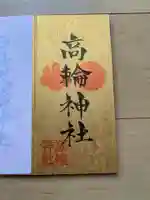 高輪神社